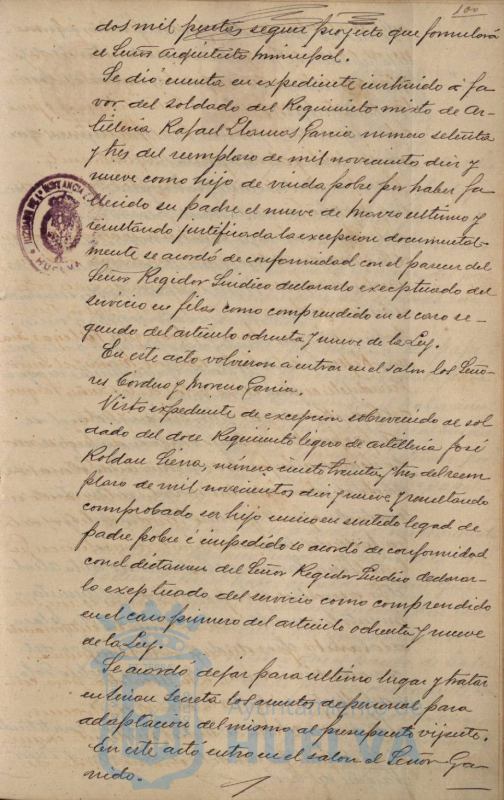 100
dos mil pesetas segun proyecto que formulará
el Señor Arquitecto municipal.
Se dió cuenta en expediente instruido á fa-
vor del soldado del Regimiento mixto de Ar-
tilleria Rafael Llamas Garcia número setenta
y tres del reemplazo de mil novecientos diez y
nueve como hijo de viuda pobre por haber fa-
llecido su padre el nueve de Marzo ultimo y
resultando justificada la excepcion documental-
mente se acordó de conformidad con el parecer del
Señor Regidor Sindico declararlo exceptuado del
servicio en filas como comprendido en el caso se-
gundo del articulo ochenta y nueve de la Ley.
En este acto volvieron a entrar en el salon los Seño-
res Cordero y Moreno Garcia.
Visto expediente de excepcion sobrevenida de sol-
dado del doce Regimiento ligero de artilleria José
Roldan Sierra, número ciento treinta y tres del reem-
plazo de mil novecientos diez y nueve y resultando
comprobado ser hijo unico en sentido legal de
padre pobre é impedido se acordó de conformidad
con el dictamen del Señor Regidor Sindico declarar-
lo exceptuado del servicio como comprendido
en el caso primero del articulo ochenta y nueve
de la Ley.
Se acordó dejar para ultimo lugar y tratar
en sesion secreta los asuntos de personal para
adaptacion del mismo al presupuesto vijente.
En este acto entro en el salon el Señor Ga-
rrido.
HUELVA
Ayuntamiento
HUELVA